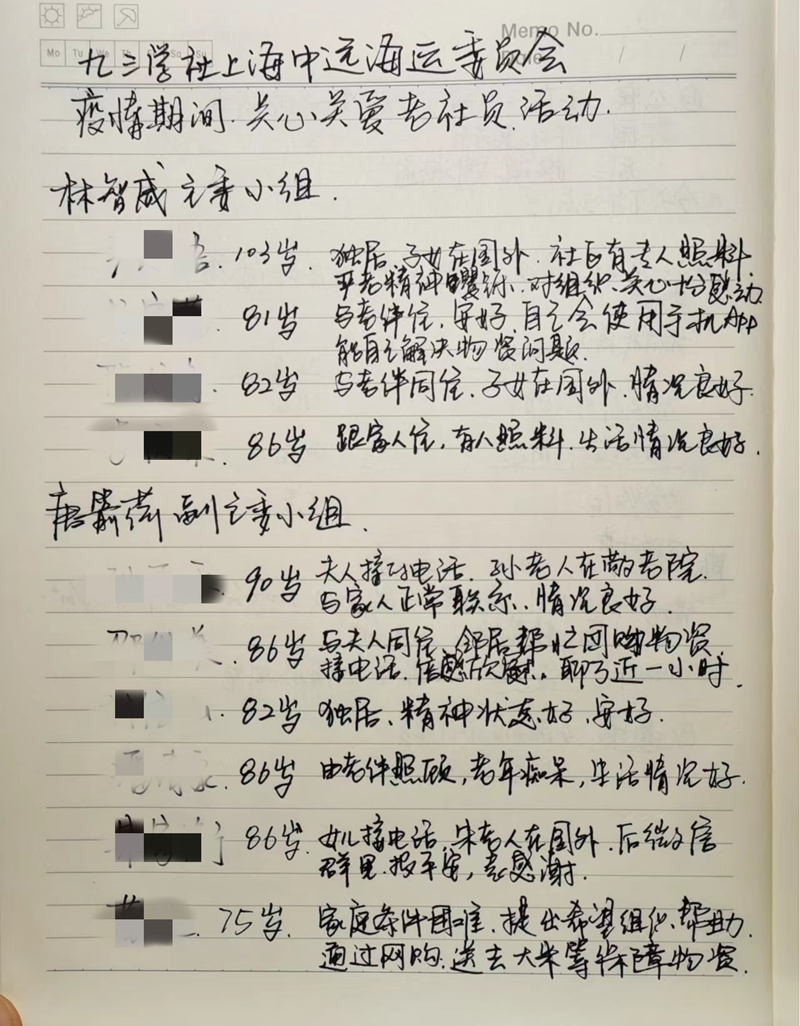 Memo No.
Mo Tu We Th Sa Su
九三学社上海中远海运委员会
疫情期间.关心关爱老社员活动.
林智威主委小组.
103岁. 独居、子女在国外.社区有专人照料
精神矍铄.对组织关心十分感动.
81岁 与老伴住,安好.自己会使用手机App
能自己解决物资问题.
82岁 与老伴同住、子女在国外.情况良好.
86岁 跟家人住,有人照料.生活情况良好.
副主委小组.
90岁 夫人接的电话.孙老人在敬老院.
与家人正常联系.情况良好.
86岁 与夫人同住、邻居帮忙团购物资.
接电话.倍感欣慰.聊了近一小时.
82岁 独居、精神状态好、安好.
86岁 由老伴照顾,老年痴呆,生活情况好.
86岁. 女儿接电话.朱老人在国外.后微信
群里报平安,表感谢.
75岁. 家庭条件困难.提出希望组织帮助.
通过网购.送去大米等保障物资.